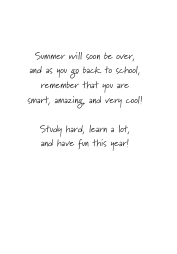 Summer will soon be over,
and as you go back to school,
remember that you are
smart, amazing, and very cool!
Study hard, learn a lot,
and have fun this year!